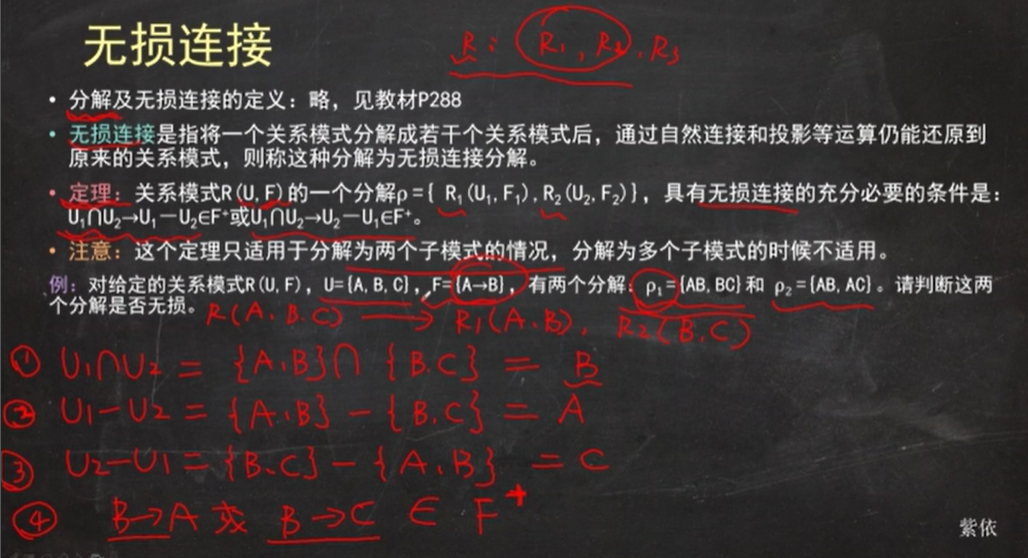 无损连接
R: R1, R2, R3
• 分解及无损连接的定义：略，见教材P288
• 无损连接是指将一个关系模式分解成若干个关系模式后，通过自然连接和投影等运算仍能还原到
原来的关系模式，则称这种分解为无损连接分解。
• 定理：关系模式R(U,F)的一个分解ρ={ R₁(U₁,F₁),R₂(U₂,F₂)}，具有无损连接的充分必要的条件是：
U₁∩U₂→U₁－U₂∈F⁺或U₁∩U₂→U₂－U₁∈F⁺。
• 注意：这个定理只适用于分解为两个子模式的情况，分解为多个子模式的时候不适用。
例：对给定的关系模式R(U,F)，U={A,B,C}，F={A→B}，有两个分解：ρ₁={AB,BC}和 ρ₂={AB,AC}。请判断这两
个分解是否无损。
R(A.B.C) → R1(A.B), R2(B.C)
① U1∩U2 = {A.B}∩{B.C} = B
② U1-U2 = {A.B} - {B.C} = A
③ U2-U1 = {B.C} - {A.B} = C
④ B→A 或 B→C ∈ F⁺
紫依